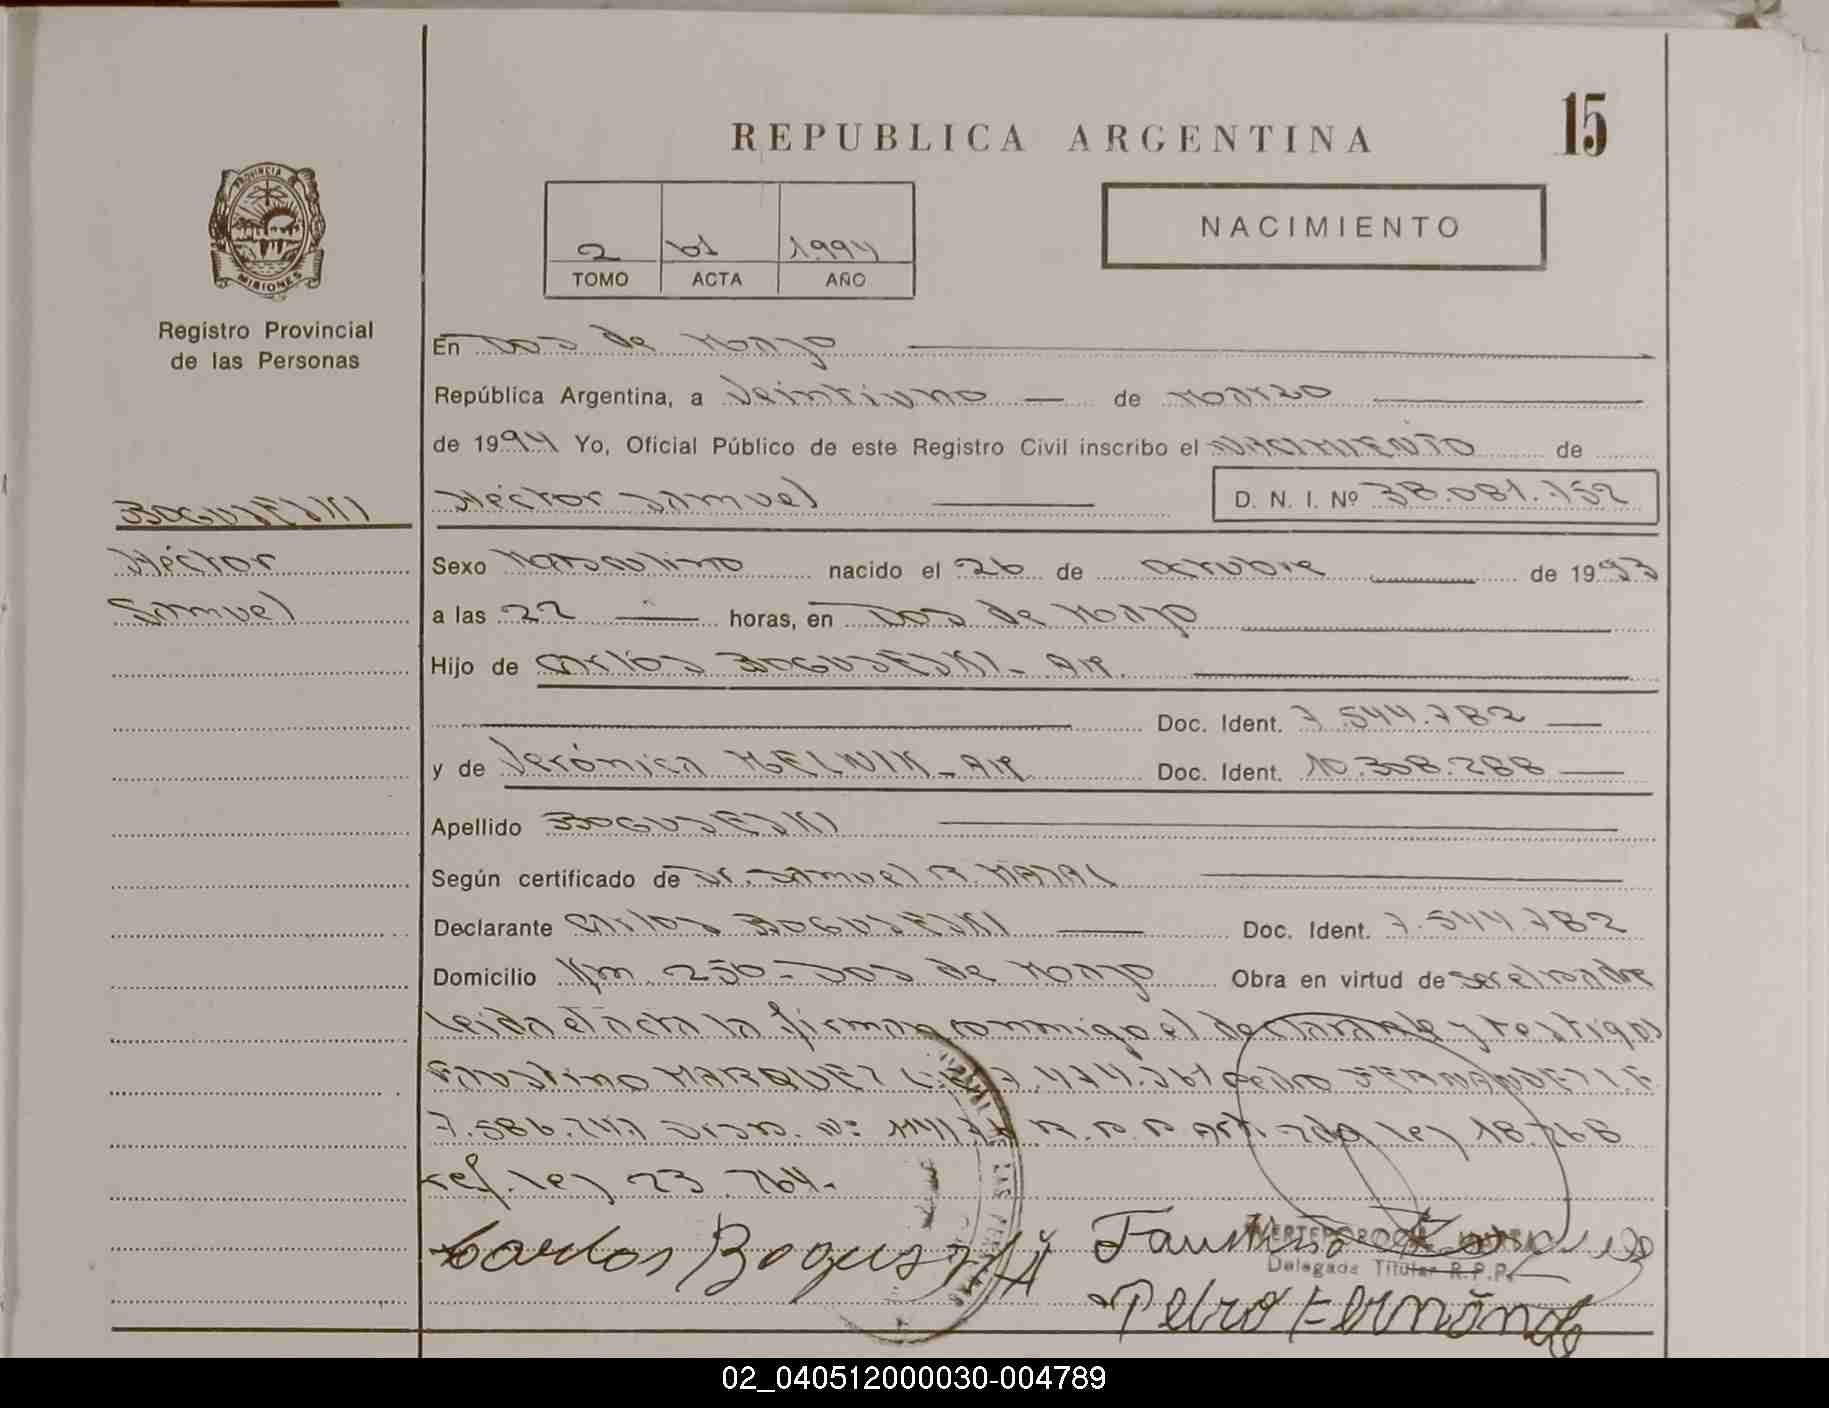 REPUBLICA ARGENTINA
15
PROVINCIA
MISIONES
Registro Provincial
de las Personas
2 61 1994
TOMO ACTA AÑO
NACIMIENTO
En Dos de Mayo
República Argentina, a Veintiuno de Marzo
de 1994 Yo, Oficial Público de este Registro Civil inscribo el NACIMIENTO de
BOGUSESKI
Héctor Samuel D. N. I. Nº 38.081.752
Héctor
Samuel
Sexo Masculino nacido el 26 de octubre de 1993
a las 22 horas, en Dos de Mayo
Hijo de Carlos BOGUSESKI-
Doc. Ident. 7.544.782
y de Verónica MELNIK- Doc. Ident. 10.308.288
Apellido BOGUSESKI
Según certificado de Dr. Samuel R.
Declarante Carlos BOGUSESKI Doc. Ident. 7.544.782
Domicilio Km 250-Dos de Mayo Obra en virtud de ser el padre
Leida el acta la firman conmigo el declarante y testigos
Faustino MARQUEZ L.E. 7.474.361 Pedro FERNANDEZ L.E.
7.586.247 Nº R.P.P. Art. ley 18.268
ref. ley 23.764.
Carlos Bogus
Faustino
Delegado Titular R.P.P.
Pedro Fernánde
02_040512000030-004789